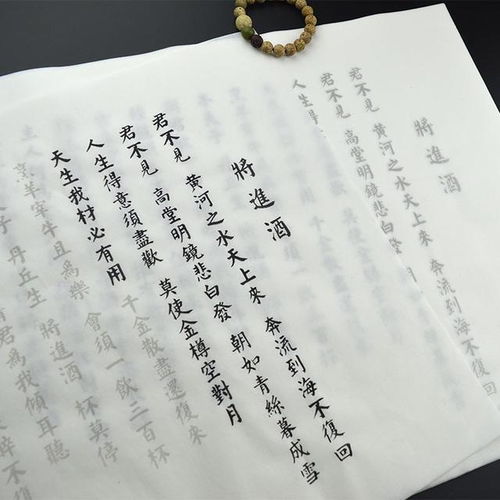 將進酒
君不見 黃河之水天上來 奔流到海不復
君不見 高堂明
人生
將進酒
君不見 黃河之水天上來 奔流到海不復回
君不見 高堂明鏡悲白發 朝如青絲暮成雪
人生得意須盡歡 莫使金樽空對月
天生我材必有用 千金散盡還復來
烹羊宰牛且爲樂 會須一飲三百杯
子 丹丘生 將進酒 杯莫停
君爲我傾耳聽
醉不